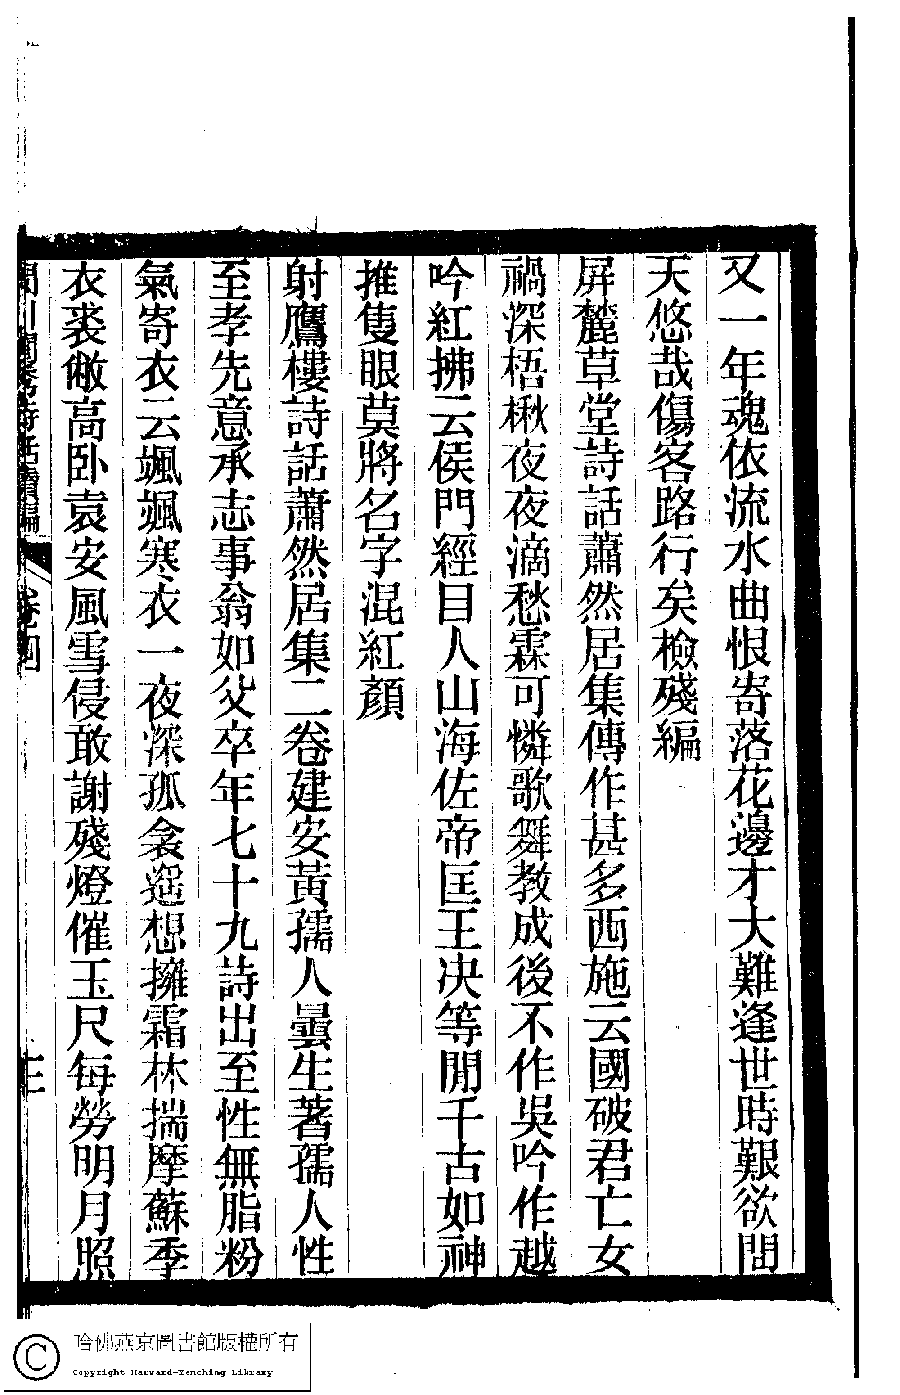 又一年魂依流水曲恨寄落花邊才大難逢世時艱欲問
天悠哉傷客路行矣檢殘編
屏麓草堂詩話蕭然居集傳作甚多西施云國破君亡女
禍深梧楸夜夜滴愁霖可憐歌舞教成後不作吳吟作越
吟紅拂云侯門經目人山海佐帝匡王决等閒千古如神
推隻眼莫將名字混紅顏
射鷹樓詩話蕭然居集二卷建安黃孺人曇生著孺人性
至孝先意承志事翁如父卒年七十九詩出至性無脂粉
氣寄衣云颯颯寒衣一夜深孤衾遥想擁霜林揣摩蘇季
衣裘敝高卧袁安風雪侵敢謝殘燈催玉尺每勞明月照
閩川閨秀詩話續編 卷四
哈佛燕京圖書館版權所有
Copyright Harvard-Yenching Library